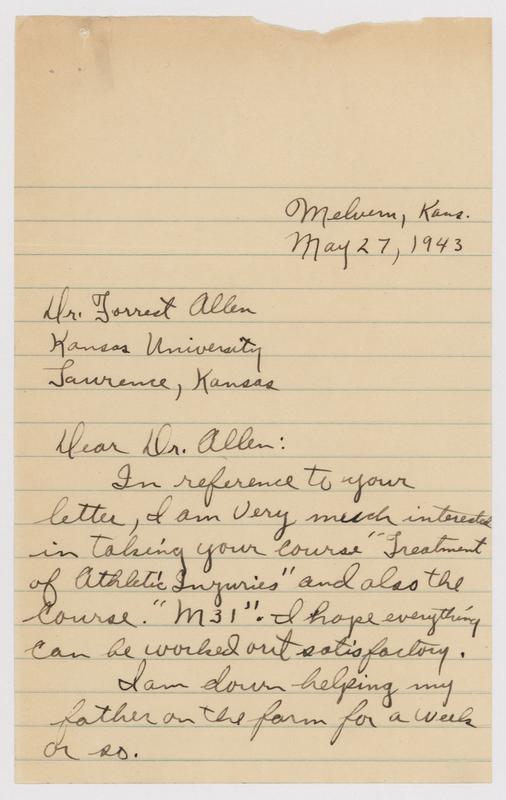 Melvern, Kans.
May 27, 1943
Dr. Forrest Allen
Kansas University
Lawrence, Kansas
Dear Dr. Allen:
In reference to your
letter, I am very much interested
in taking your course "Treatment
of Athletic Injuries" and also the
course. "M31". I hope everything
can be worked out satisfactory.
I am down helping my
father on the farm for a week
or so.